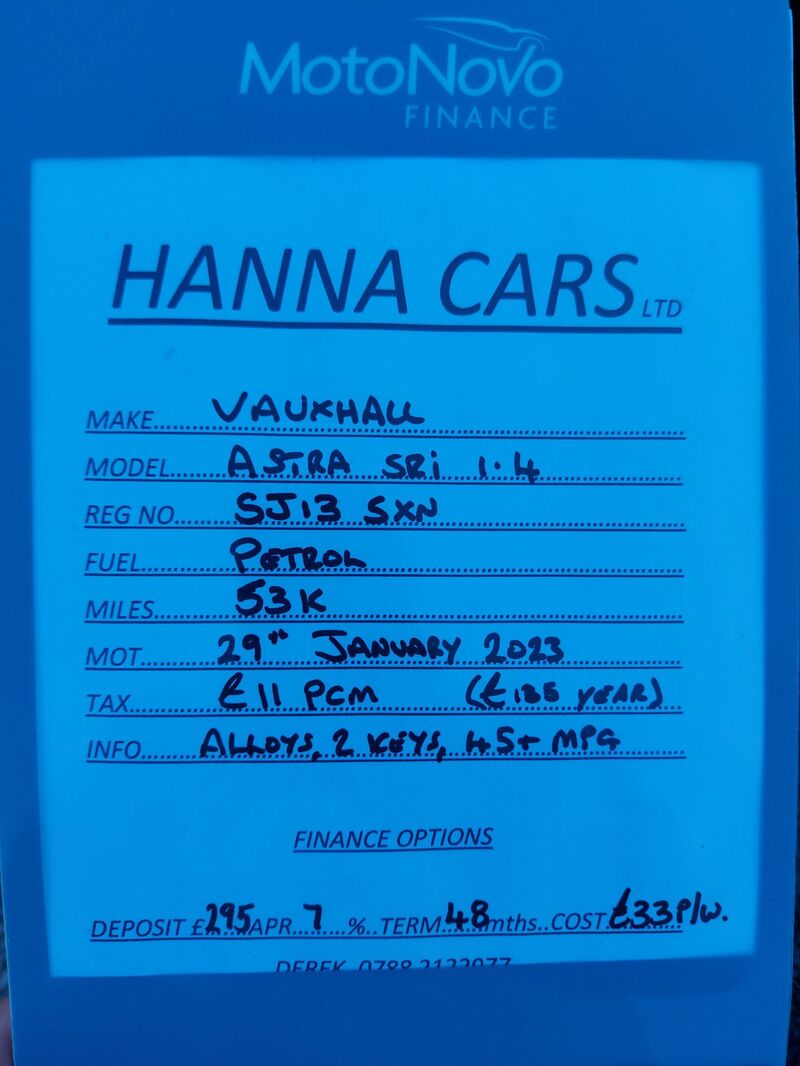 MotoNovo
FINANCE
HANNA CARS LTD
MAKE..... VAUXHALL
MODEL..... ASTRA SRi 1.4
REG NO..... SJ13 SXN
FUEL..... PETROL
MILES..... 53K
MOT..... 29TH JANUARY 2023
TAX..... £11 PCM (£135 YEAR)
INFO..... ALLOYS, 2 KEYS, 45+ MPG
FINANCE OPTIONS
DEPOSIT £295 APR 7 %..TERM 48 mths..COST £33 P/W.
DEREK